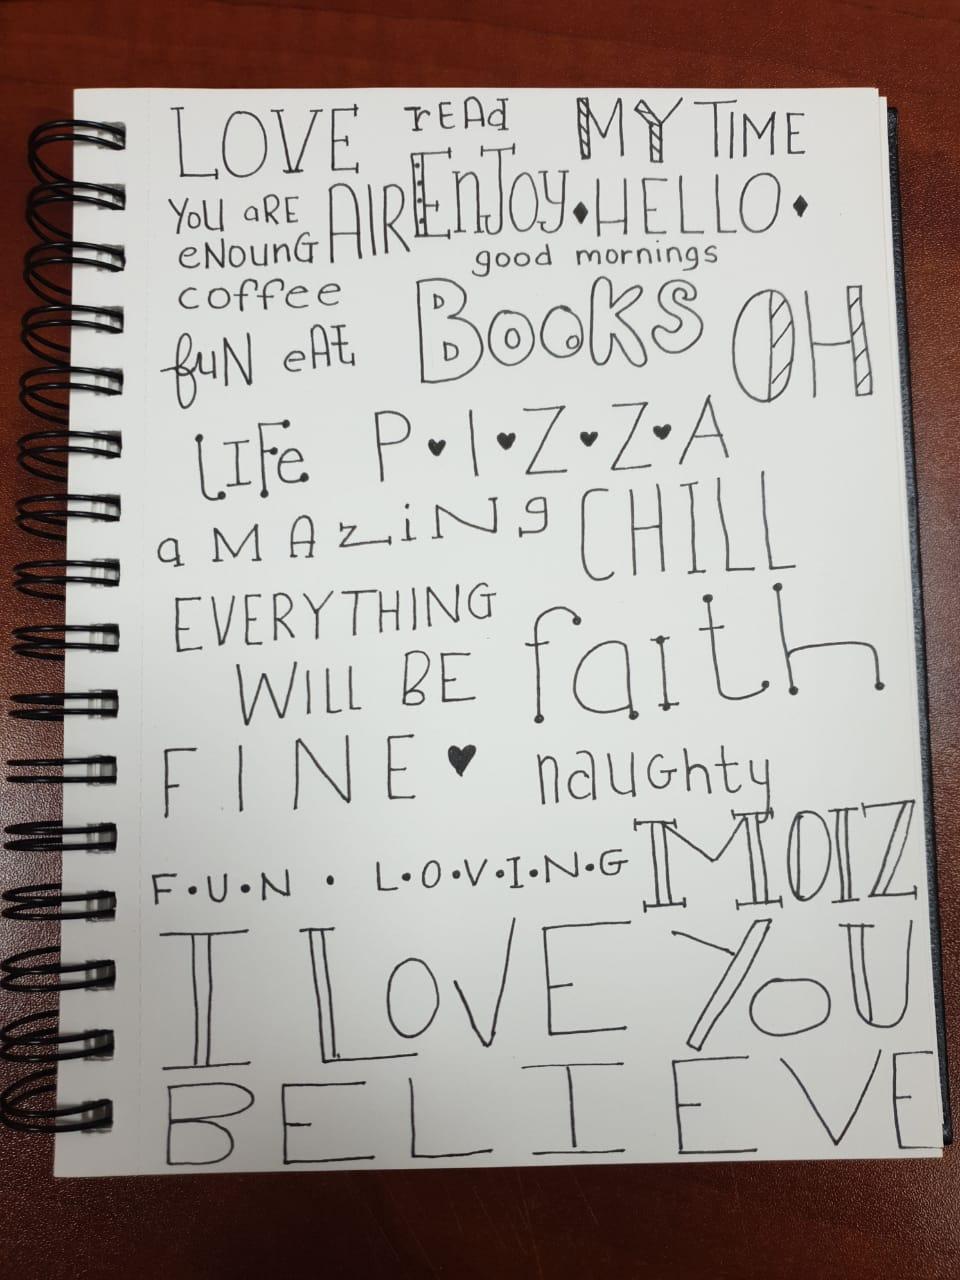 LOVE rEAd MY TIME
YoU aRE AIR EnJoy HELLO
eNounG good mornings
coffee BooKS OH
fuN eAt
LIFe P•I•Z•Z•A
aMAziNg CHILL
EVERYTHING faith
WILL BE
FINE naUGhty
F•U•N• L•O•V•I•N•G MOIZ
I LoVE YoU
BELIEVE